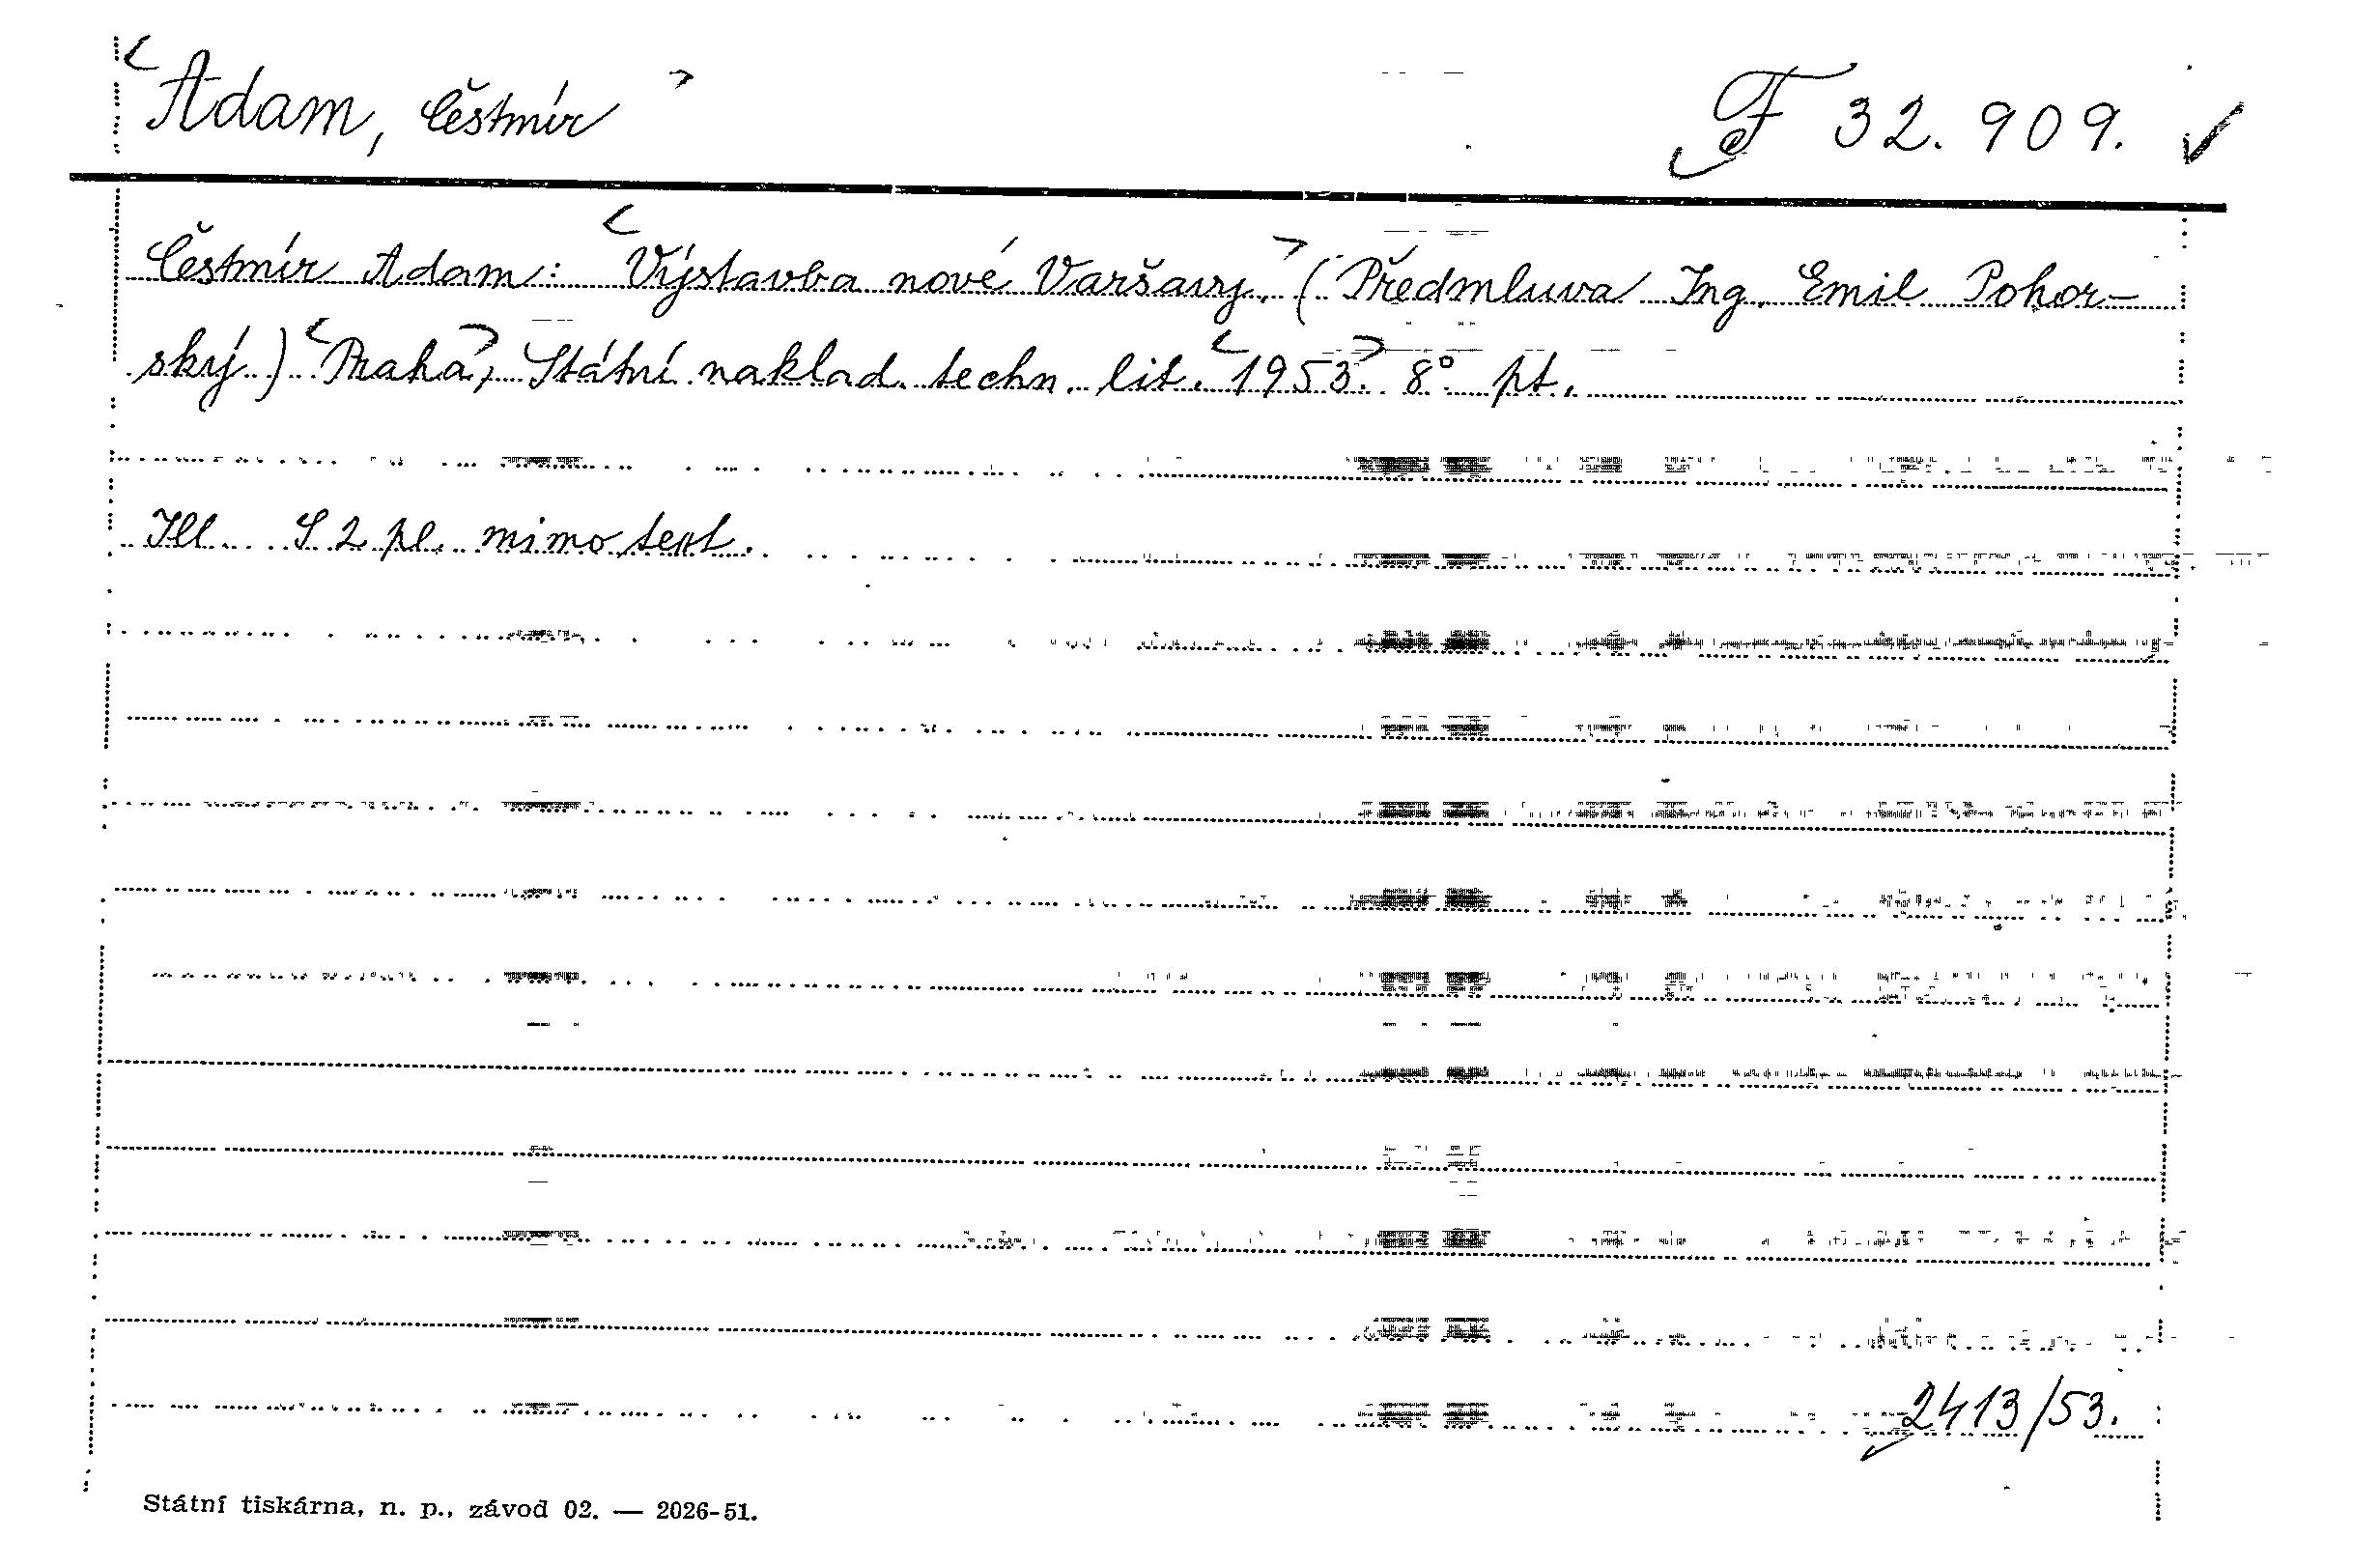 <Adam, Čestmír> F 32.909. ✓
Čestmír Adam: <Výstavba nové Varšavy.> (Předmluva Ing. Emil Pohor-
ský) <Praha>, Státní naklad. techn. lit. <1953>. 8° pt.
Ill. S 2 pl. mimo text.
2413/53.
Státní tiskárna, n. p., závod 02. — 2026-51.